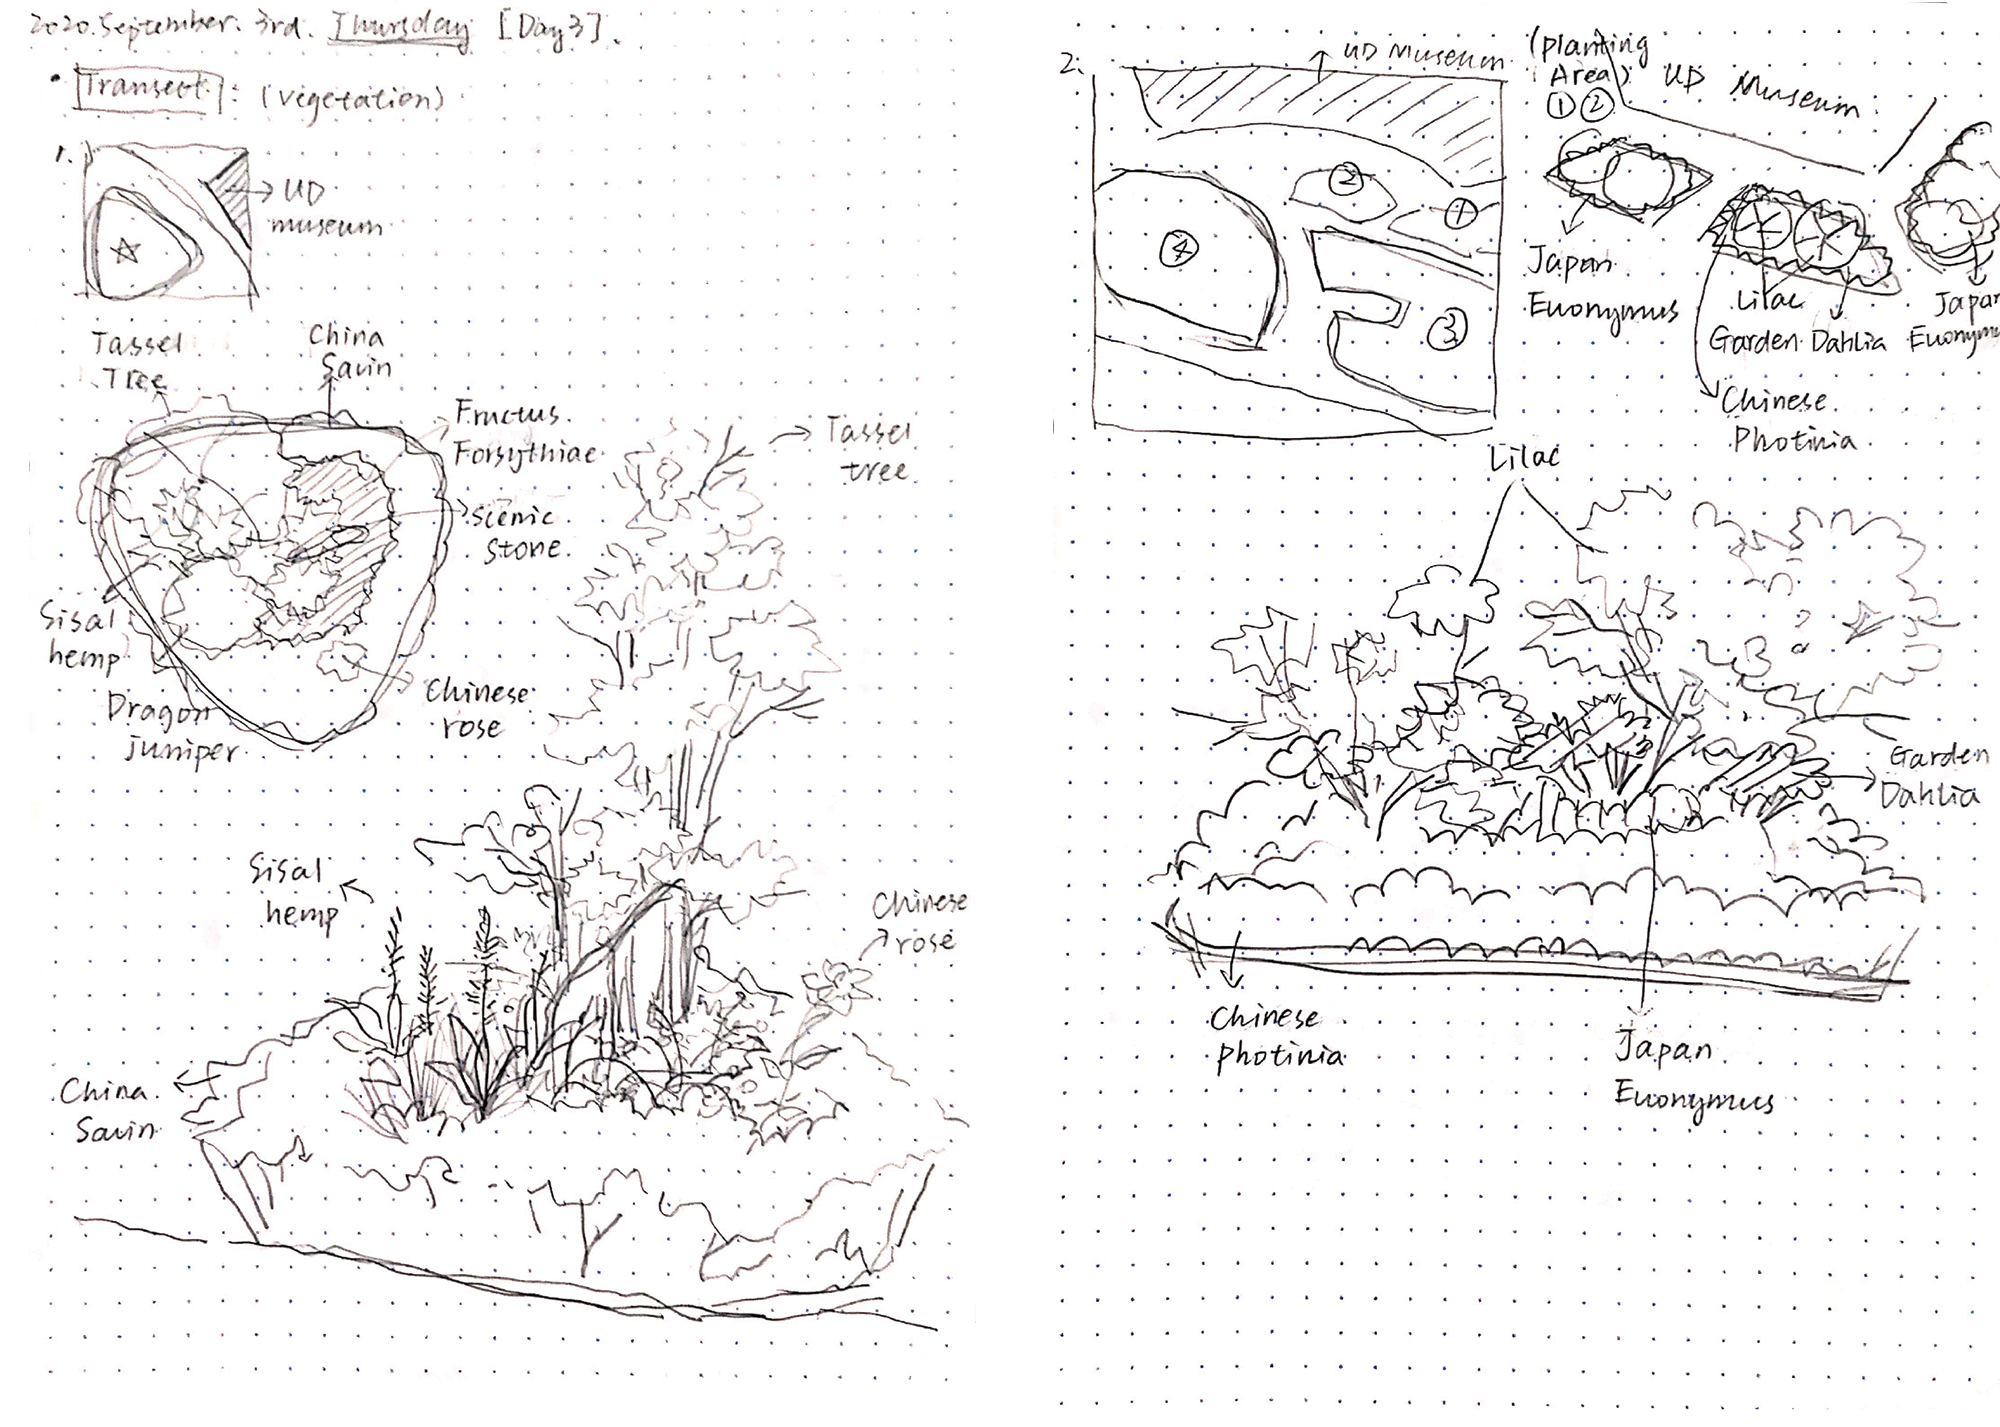 2020. September. 3rd. Thursday [Day 3].
• Transect: (vegetation)
1.
UD
museum
Tassel
Tree
China
Savin
Fructus
Forsythiae
Scenic
Stone
Sisal
hemp
Dragon
juniper
Chinese
rose
Tassel
tree
Sisal
hemp
Chinese
rose
China
Savin
2.
UD Museum
②
①
④
③
(planting
Area)
① ②
UD Museum
Japan
Euonymus
Lilac
Garden Dahlia
Japan
Euonymus
Chinese
Photinia
Lilac
Garden
Dahlia
Chinese
photinia
Japan
Euonymus